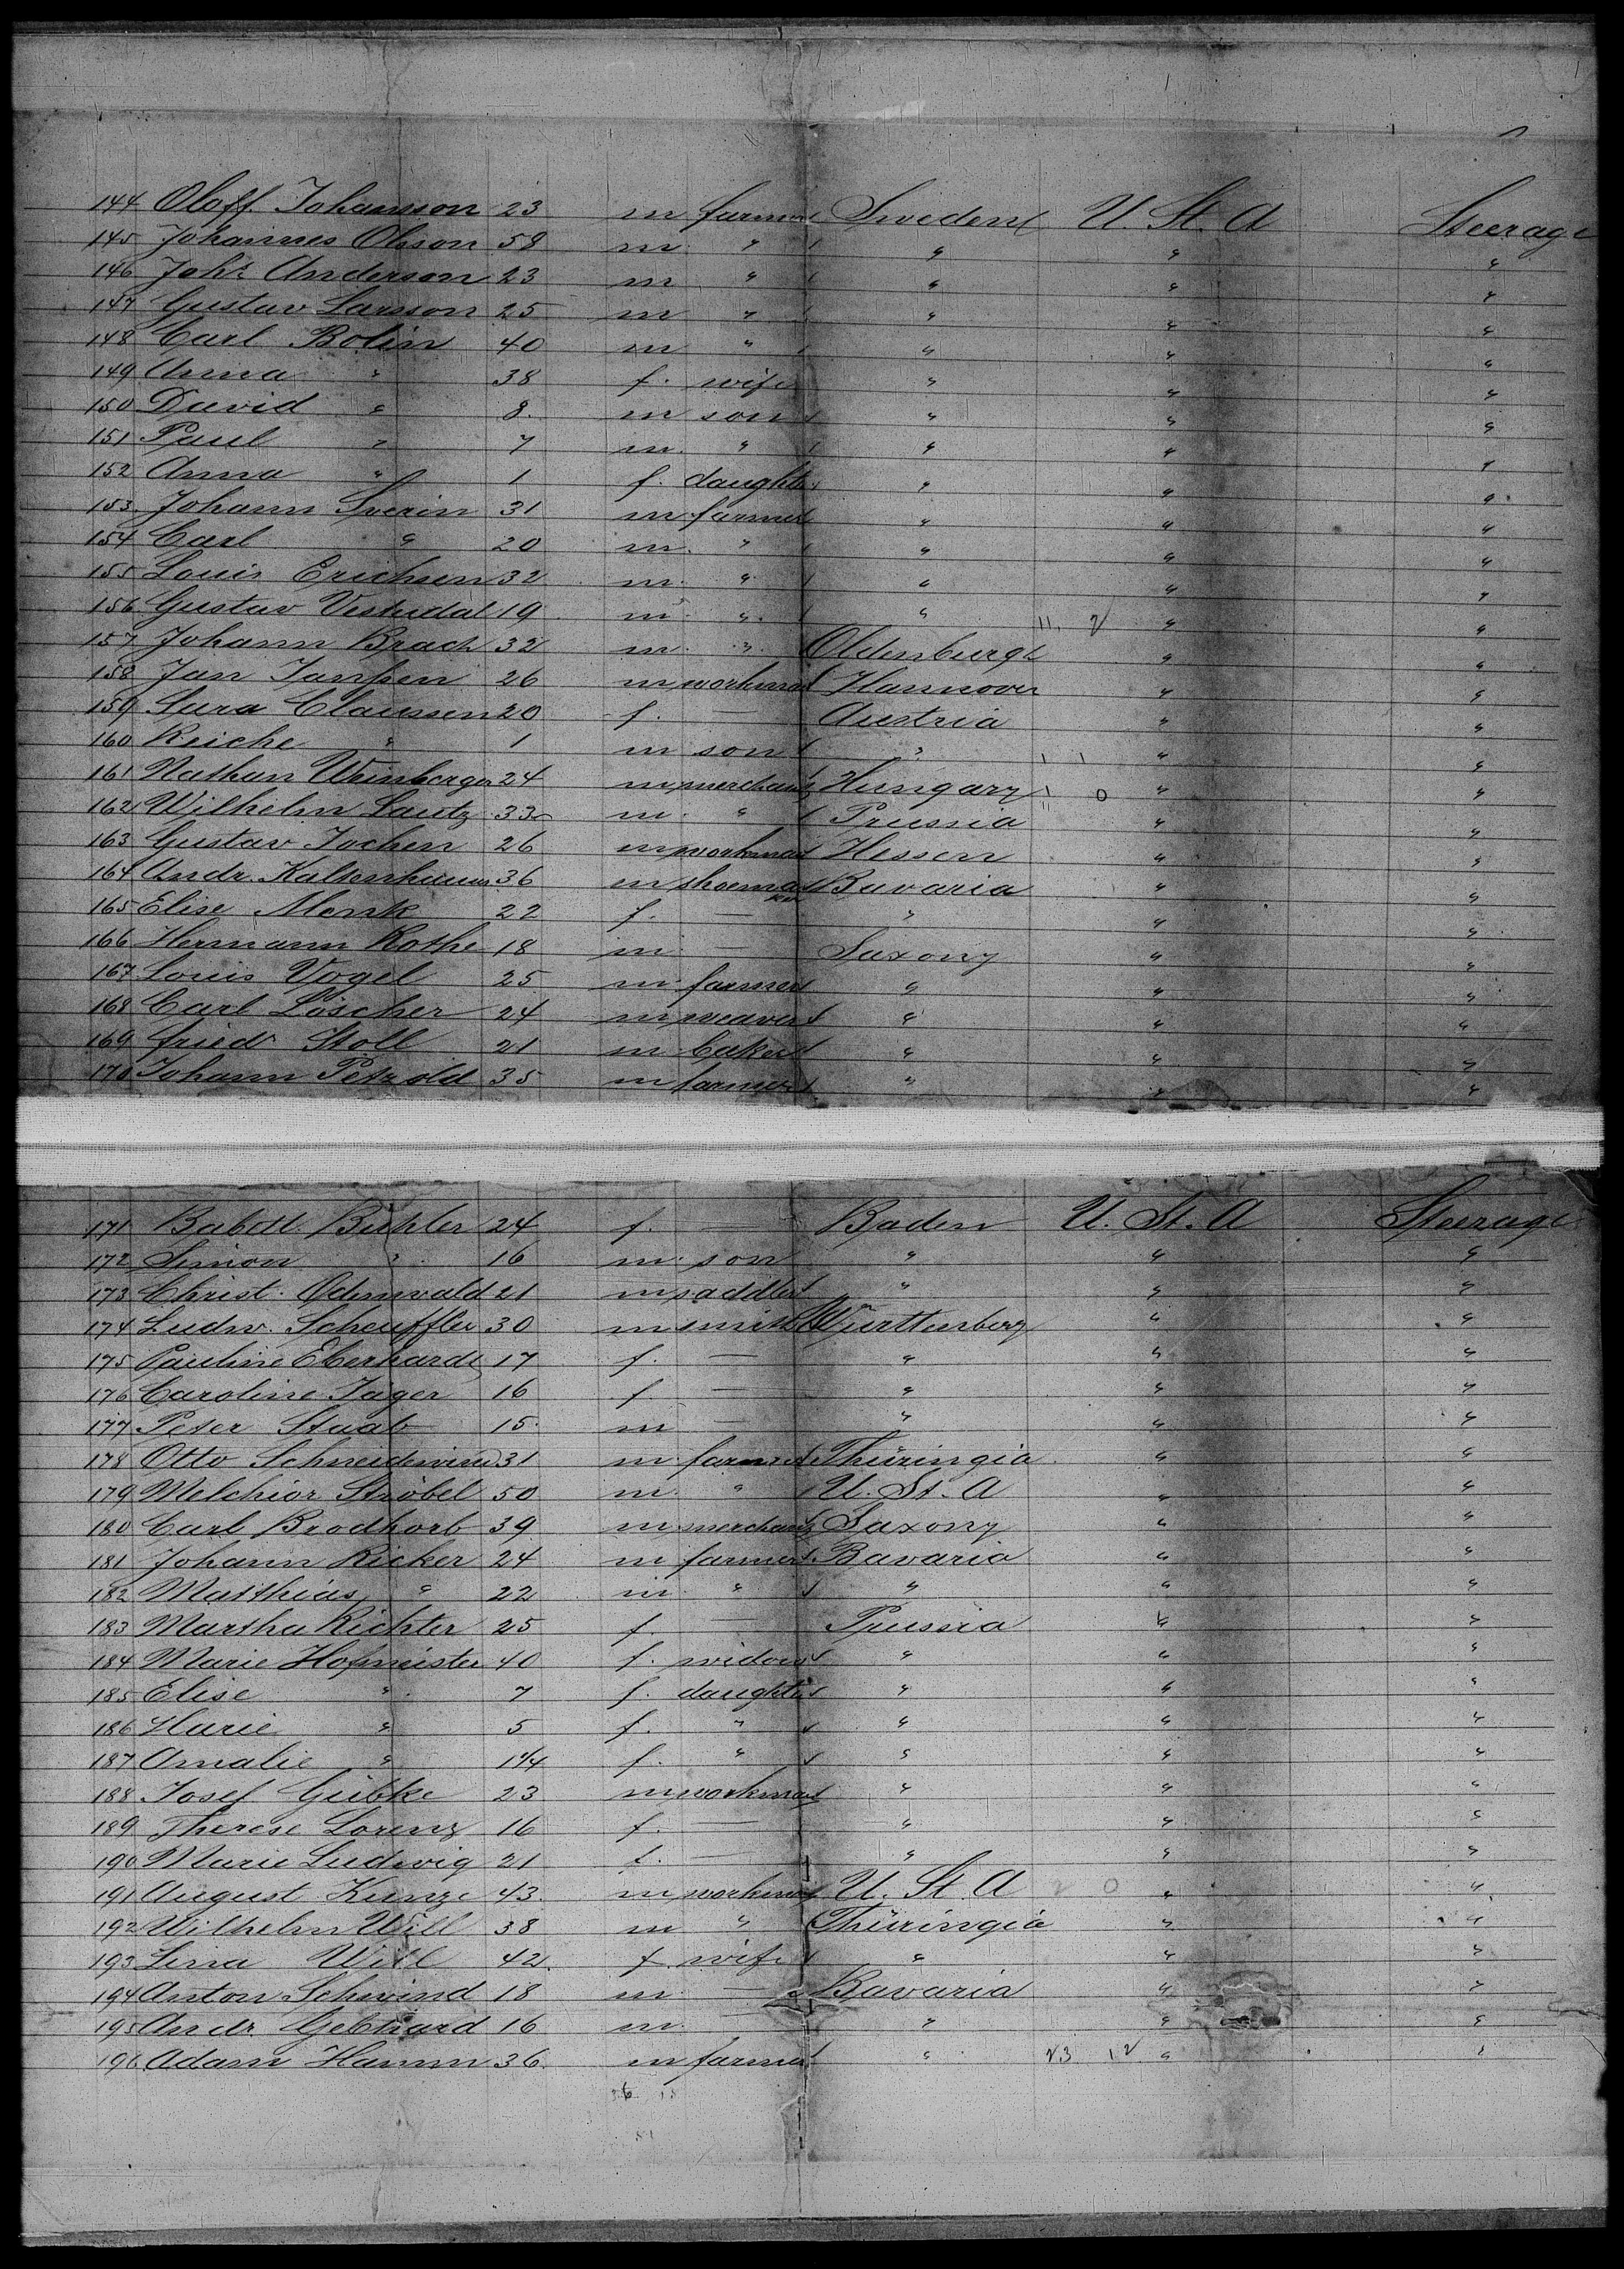 144 Oloff Johansson 23 m farmer Sweden U. St. A Steerage
145 Johannes Olsson 58 m " " " "
146 Johs Anderson 23 m " " " "
147 Gustav Larsson 25 m " " " "
148 Carl Bolin 40 m " " " "
149 Anna " 38 f. wife " " "
150 David " 8. m son " " "
151 Paul " 7 m. " " " "
152 Anna " 1 f. daughter " " "
153 Johann Sverin 31 m farmer " " "
154 Carl " 20 m. " " " "
155 Louis Erichsen 32 m. " " " "
156 Gustav Vestudal 19 m. " " 11. 2 " "
157 Johann Brach 32 m. " Oldenburg " "
158 Jan Janssen 26 m workman Hannover " "
159 Sara Claussen 20 f. — Austria " "
160 Reiche " 1 m son " " "
161 Nathan Weinberger 24 m merchant Hungary 0 " "
162 Wilhelm Lautz 33 m. " Prussia " "
163 Gustav Jochen 26 m workman Hessen " "
164 Andr. 36 m shoemaker Bavaria " "
165 Elise Menk 22 f. — " " "
166 Hermann Kothe 18 m. — Saxony " "
167 Louis Vogel 25 m. farmer " " "
168 Carl Löscher 24 m weaver " " "
169 Fried. Stoll 21 m. baker " " "
170 Johann Petzold 35 m farmer " " "
171 Babett Bichler 24 f. — Baden U. St. A Steerage
172 Simon " 16 m. son " " "
173 Christ. Odenwald 21 m saddler " " "
174 Ludw. Scheuffler 30 m smith Württenberg " "
175 Pauline Eberhardt 17 f. — " " "
176 Caroline Jäger 16 f — " " "
177 Peter Staab 15. m — " " "
178 Otto Schneidewind 31 m. farmer Thüringia " "
179 Melchior Ströbel 50 m. " U. St. A " "
180 Carl Brodkorb 39 m merchant Saxony " "
181 Johann Ricker 24 m farmer Bavaria " "
182 Matthias " 22 m. " " " "
183 Martha Richter 25 f. — Prussia " "
184 Marie Hofmeister 40 f. widow " " "
185 Elise " 7 f. daughter " " "
186 Marie " 5 f. " " " "
187 Amalie " 1 1/4 f. " " " "
188 Josef Gübke 23 m workman " " "
189 Therese Lorenz 16 f. — " " "
190 Marie Ludwig 21 f. — " " "
191 August Kunze 43. m workman U. St. A 2 0 " "
192 Wilhelm Will 38 m " Thüringia " "
193 Lina Will 42. f. wife " " "
194 Anton Schwind 18 m. — Bavaria " "
195 Andr. Gebhard 16 m. — " " "
196 Adam Hamm 36. m farmer " 23 12 " "